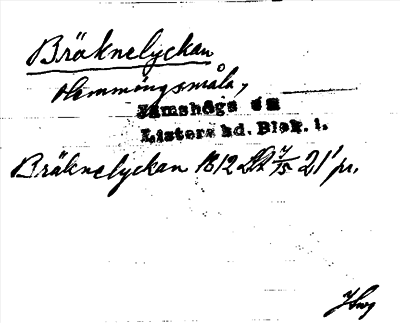 Bräknelyckan
Hemmingsmåla,
Jämshögs sn
Listers hd. Blek. l.
Bräknelyckan 1812 7/15 21' pr.